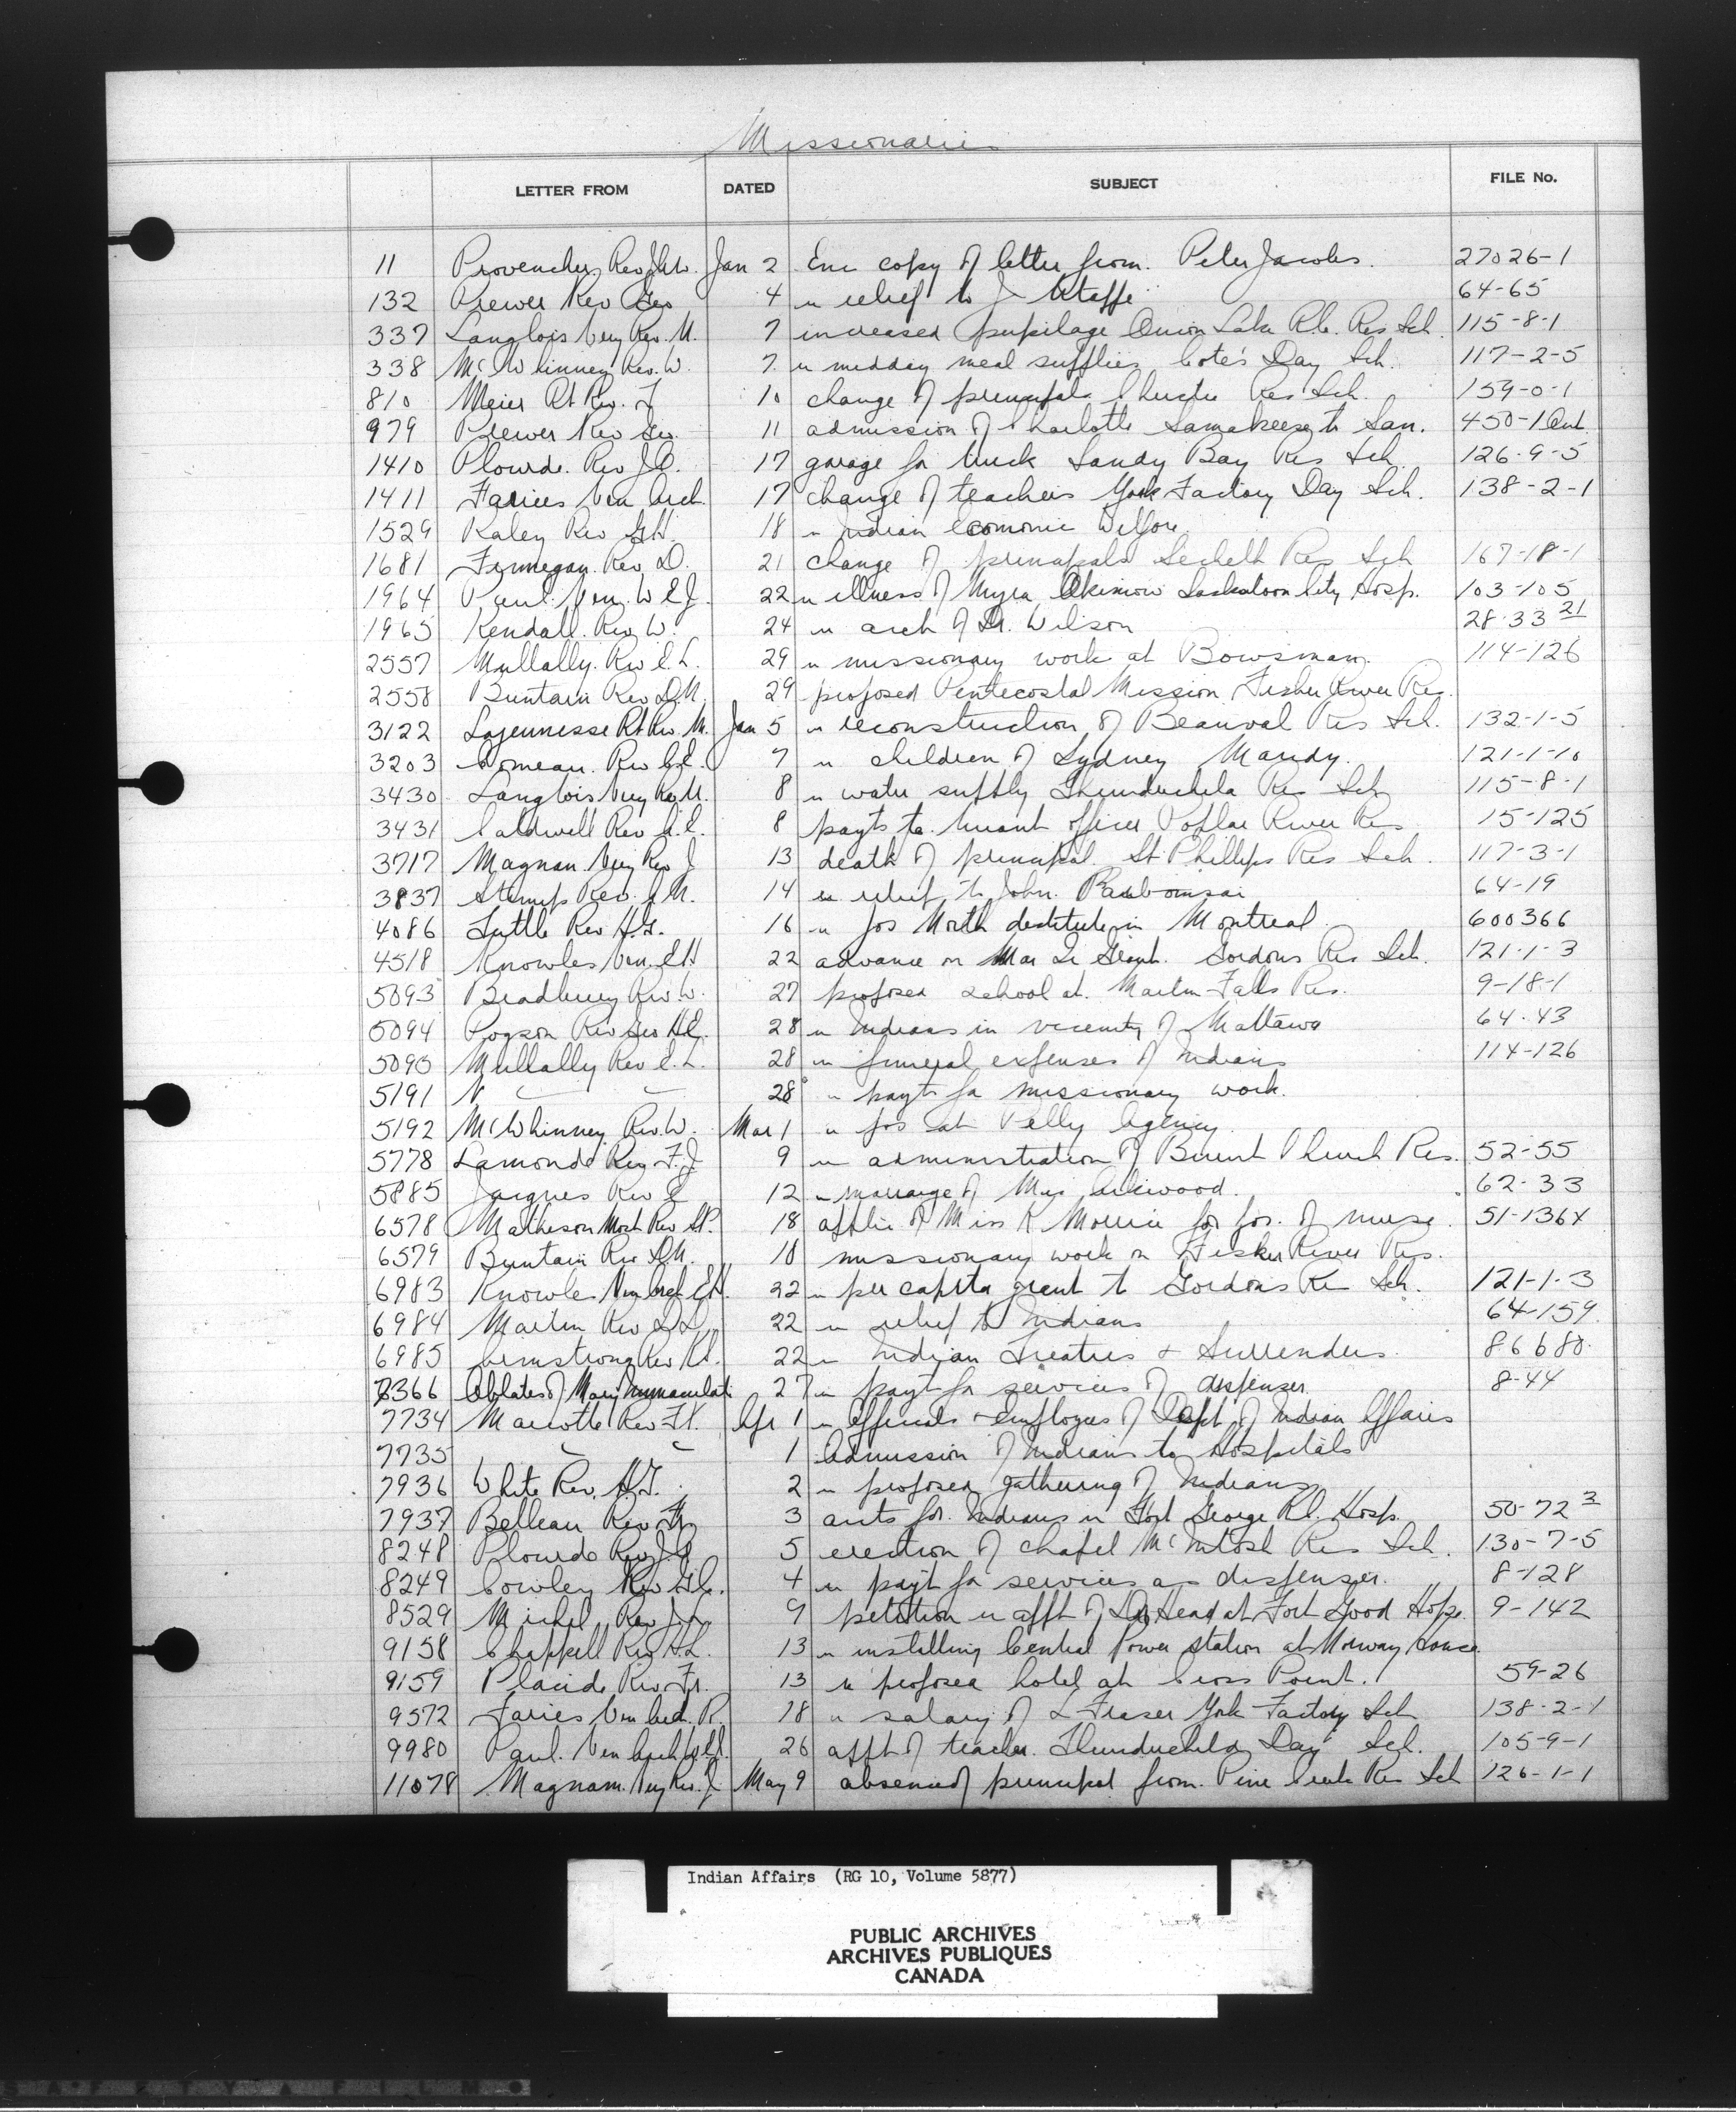 Missionaries
LETTER FROM DATED SUBJECT FILE No.
11 Provencher Rev Jan 2 Enc copy of letter from. Peter Jacobs. 27026-1
132 Prewer Rev Geo 4 re relief to J 64-65
337 Langlois Very Rev. U. 7 increased pupilage Onion Lake R.C. Res Sch. 115-8-1
338 McWhinney Rev. W. 7 re midday meal supplies Cote's Day Sch. 117-2-5
810 Meier Rt Rev. J 10 change of principals Res Sch. 159-0-1
979 Prewer Rev Geo. 11 admission of Charlotte to San. 450-1 Ont
1410 Plourde. Rev J.O. 17 garage for truck Sandy Bay Res Sch 126-9-5
1411 Faries Ven Arch. 17 change of teachers York Factory Day Sch. 138-2-1
1529 Raley Rev G.H. 18 re Indian Economic Welfare
1681 Finnegan. Rev. D. 21 change of principals Sechelt Res Sch 167-18-1
1964 Paul. Ven. W E J. 22 re illness of Myra Saskatoon City Hosp. 103-105
1965 Kendall. Rev. W. 24 re acct of Dr. Wilson 28-33 21
2557 Mullally. Rev E. L. 29 re missionary work at Bowsman. 114-126
2558 Buntain Rev D.N. 29 proposed Pentecostal Mission Fisher River Res.
3122 Lajeunesse Rt Rev. M. Jan 5 re reconstruction of Beauval Res Sch. 132-1-5
3203 Comeau. Rev C.E. 7 re children of Sydney Mandy. 121-1-10
3430 Langlois Very Rev U. 8 re water supply Thunderchild Res Sch 115-8-1
3431 Caldwell Rev 8 payts to truant officer Poplar River Res 15-125
3717 Magnan Very Rev J 13 death of principal. St Phillips Res Sch. 117-3-1
3837 Rev. 14 re relief to John. 64-19
4086 Tuttle Rev H.G. 16 re Jos North destitute in Montreal 600366
4518 Knowles Ven. E.H. 22 advance on Mar Qr Grant. Gordons Res Sch. 121-1-3
5093 Bradbury Rev. W. 27 proposed School at. Martin Falls Res. 9-18-1
5094 Pogson Rev Geo H.E. 28 re Indians in vicinity of Mattawa 64-43
5095 Mullally Rev E. L. 28 re funeral expenses of Indians 114-126
5191 " 28 re payts for missionary work.
5192 McWhinney. Rev. W. Mar 1 re pos at Pelly Agency.
5778 Lamonde Rev. F.J 9 re administration of Burnt Church Res. 52-55
5885 Jacques Rev E 12 re marriage of 62-33
6578 Matheson Most Rev S.P. 18 applic of Miss K for pos. of nurse. 51-1364
6579 Buntain Rev D.N. 18 missionary work on Fisher River Res.
6983 Knowles Ven Arch E.H. 22 re per capita grant to Gordons Res Sch. 121-1-3
6984 Martin Rev 22 re relief to Indians 64-159
6985 Armstrong Rev 22 re Indian Treaties & Surrenders. 86680
7366 Oblates of Mary Immaculate 27 re payt for services of dispenser 8-44
7734 Marcotte Rev F.X. Apr 1 re Officials & employees of Dept of Indian Affairs
7735 " " 1 Admission of Indians to Hospitals
7936 White Rev. H.G. 2 re proposed gathering of Indians
7937 Belleau Rev Fr 3 accts for. Indians in Fort George R.C. Hosp. 50-72 3
8248 Plourde Rev J.O. 5 erection of chapel McIntosh Res Sch. 130-7-5
8249 Cowley Rev 4 re payt for services as dispenser. 8-128
8529 Michel Rev J.L. 9 petition re appt of Dr Head at Fort Good Hope. 9-142
9158 Chappell Rev H.L. 13 re installing Central Power station at Norway House
9159 Placide Rev. Fr. 13 re proposed hotel at Cross Point. 59-26
9572 Faries Ven Arch. R. 18 re salary of L Fraser York Factory Sch 138-2-1
9980 Paul. Ven Arch W.E.J. 26 appt of teacher. Thunderchild Day Sch. 105-9-1
11078 Magnan. Very Rev. J May 9 absence of principal from. Pine Creek Res Sch 126-1-1
Indian Affairs (RG 10, Volume 5877)
PUBLIC ARCHIVES
ARCHIVES PUBLIQUES
CANADA